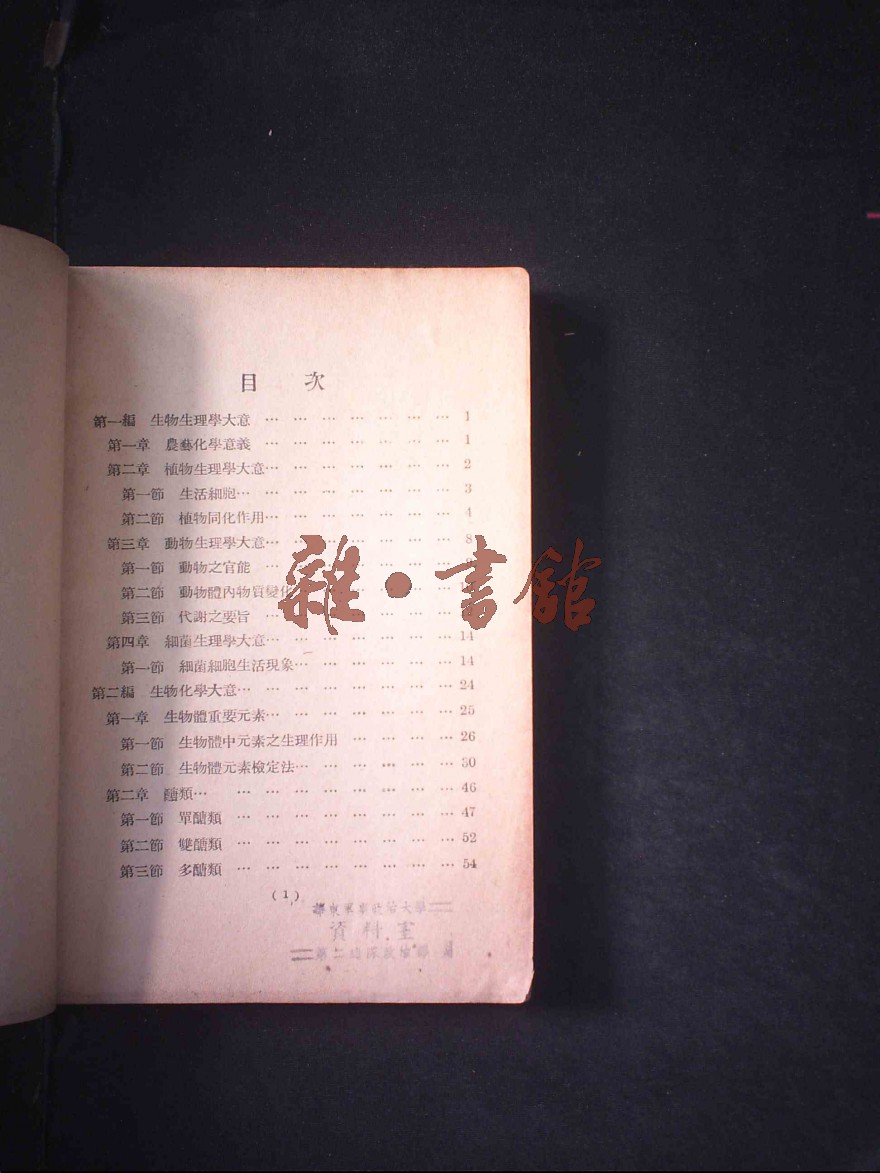 目 次
第一編 生物生理學大意 … … … … … … … 1
第一章 農藝化學意義 … … … … … … … 1
第二章 植物生理學大意… … … … … … … 2
第一節 生活細胞… … … … … … … … 3
第二節 植物同化作用… … … … … … … 4
第三章 動物生理學大意… … … … … … … 8
第一節 動物之官能 … … … … … … …
第二節 動物體內物質變化
第三節 代謝之要旨 …
第四章 細菌生理學大意… … … … … … … 14
第一節 細菌細胞生活現象… … … … … … 14
第二編 生物化學大意… … … … … … … … 24
第一章 生物體重要元素… … … … … … … 25
第一節 生物體中元素之生理作用 … … … … 26
第二節 生物體元素檢定法… … … … … … 30
第二章 醣類… … … … … … … … … 46
第一節 單醣類 … … … … … … … … 47
第二節 雙醣類 … … … … … … … … 52
第三節 多醣類 … … … … … … … … 54
(1)
資料室
雜·書館